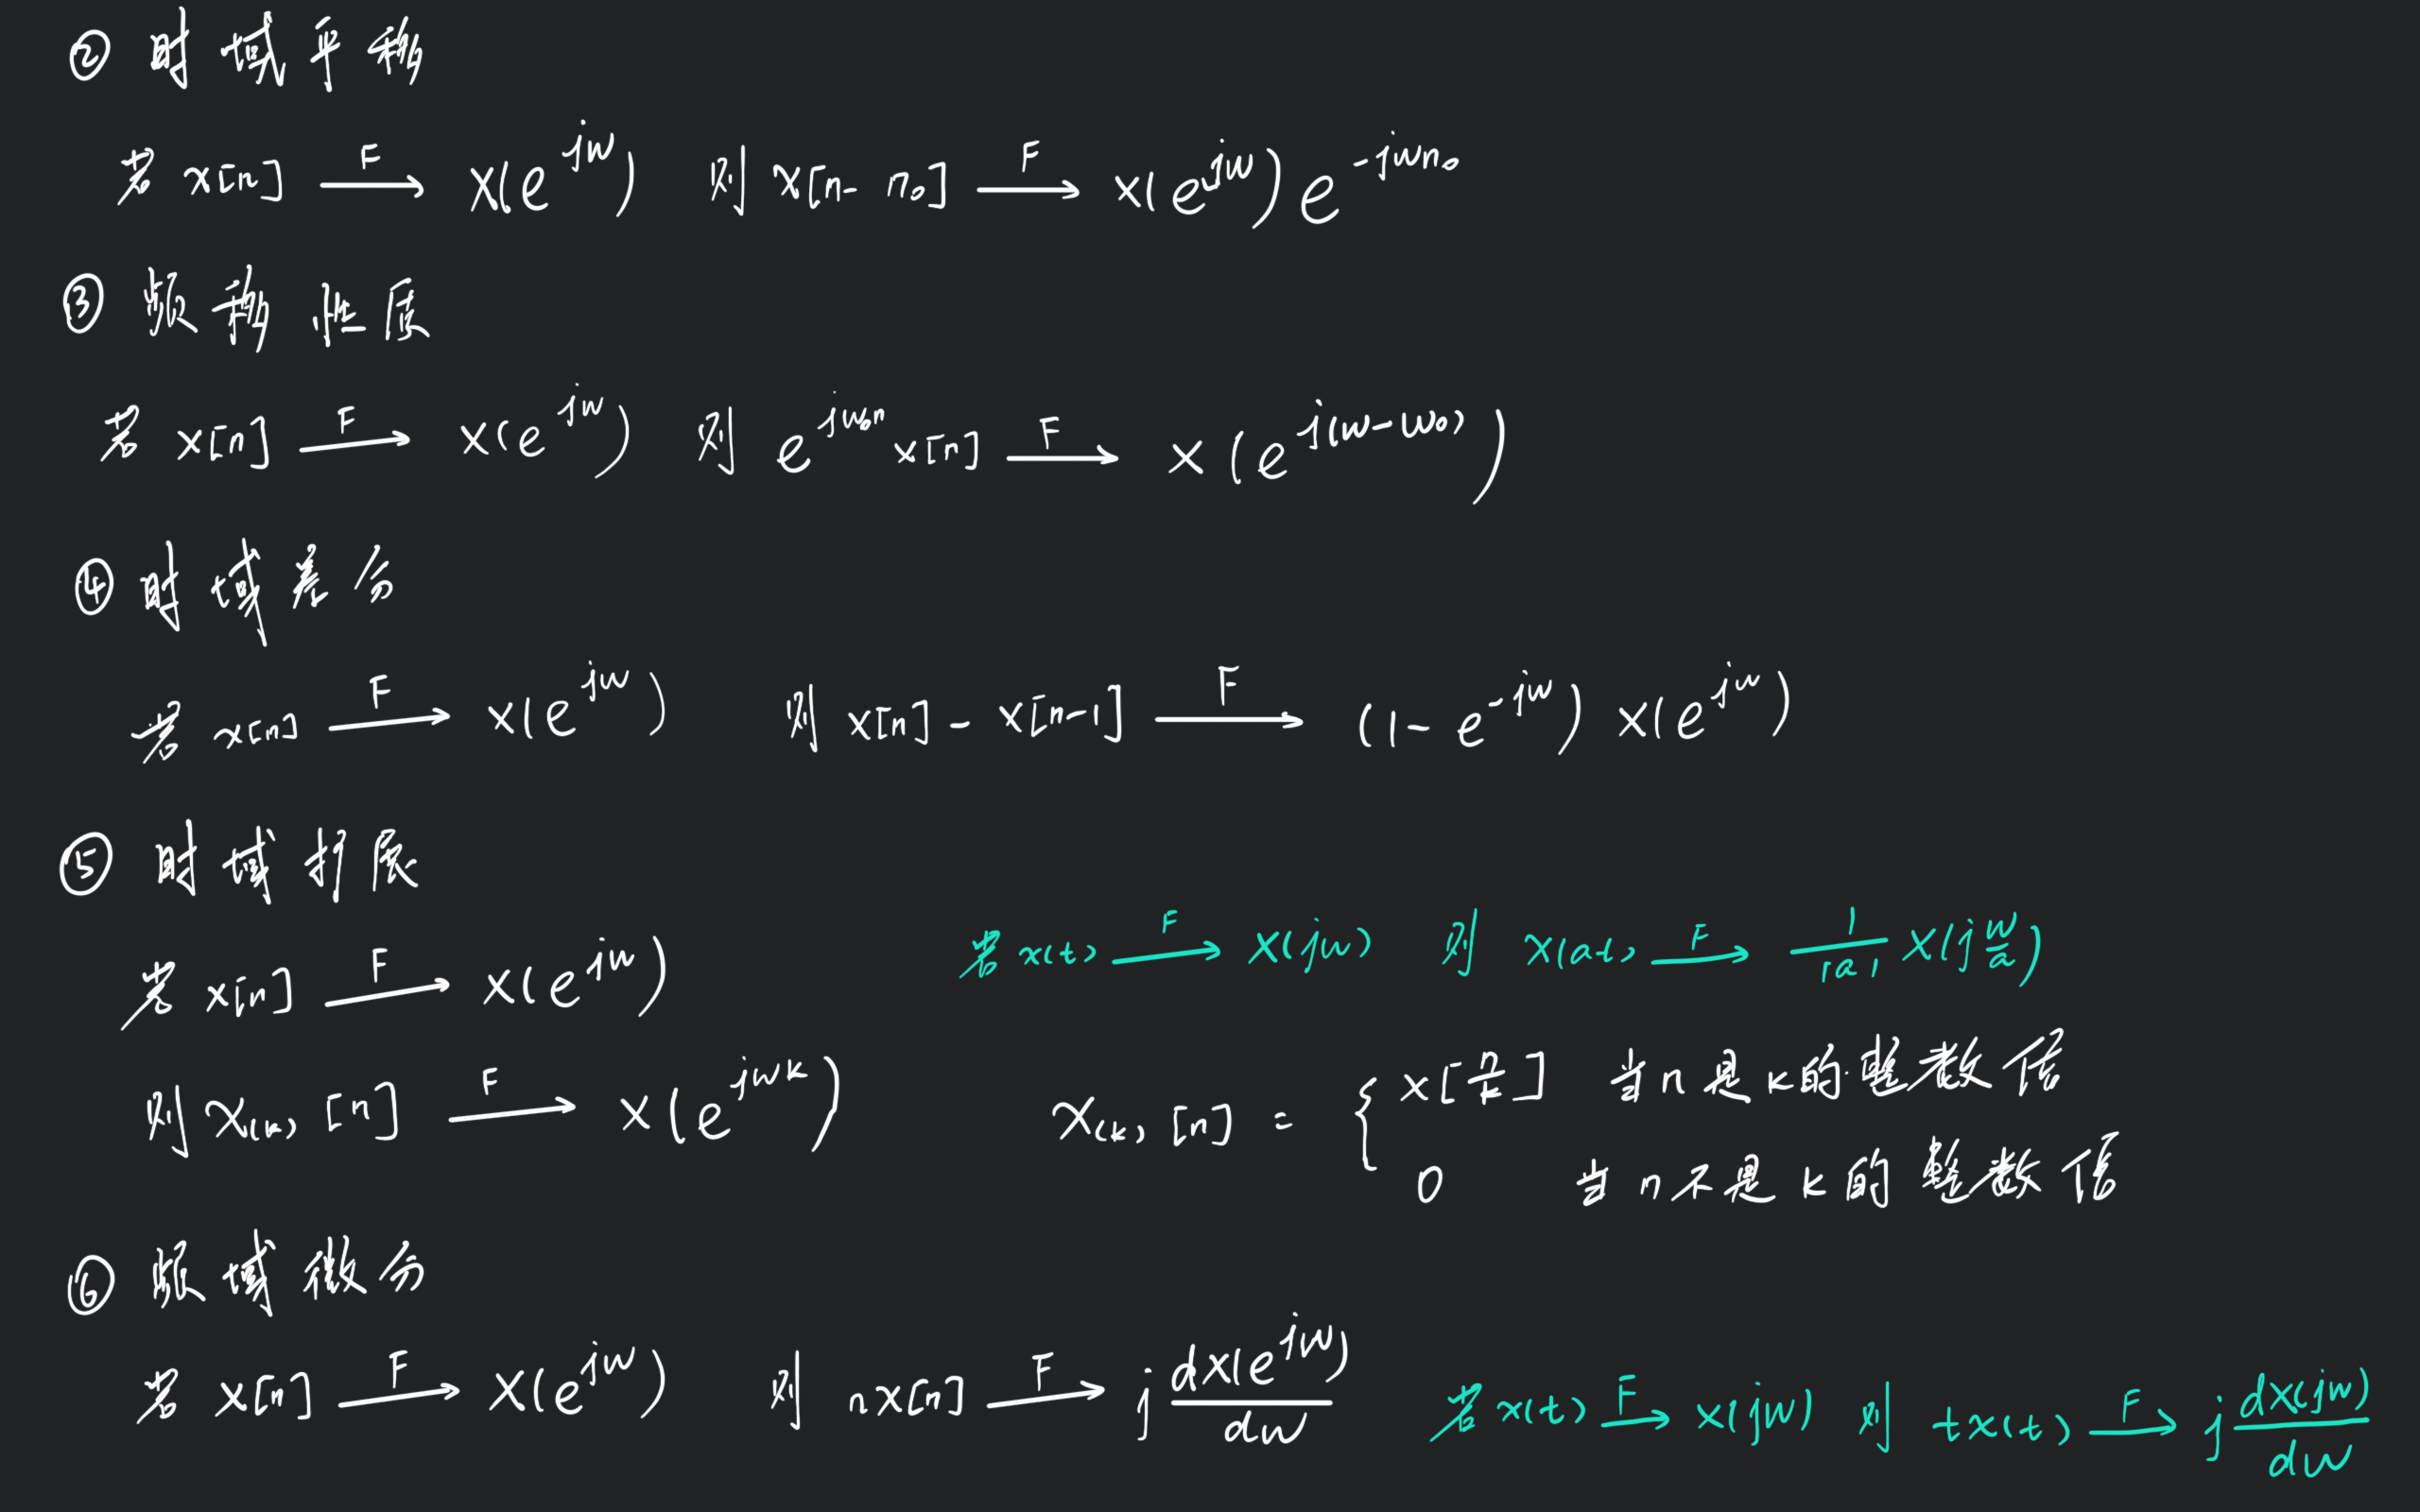 ② 时域平移
若 x[n] —F→ X(e^{jw}) 则 x[n-n₀] —F→ X(e^{jw})e^{-jwn₀}
③ 频移性质
若 x[n] —F→ X(e^{jw}) 则 e^{jw₀n}x[n] —F→ X(e^{j(w-w₀)})
④ 时域差分
若 x[n] —F→ X(e^{jw}) 则 x[n] - x[n-1] —F→ (1-e^{-jw}) X(e^{jw})
⑤ 时域扩展
若 x[n] —F→ X(e^{jw}) 若 x(t) —F→ X(jw) 则 x(at) —F→ \frac{1}{|a|} X(j\frac{w}{a})
则 x₍ₖ₎[n] —F→ X(e^{jwk}) x₍ₖ₎[n] = { x[\frac{n}{k}] 当n是k的整数倍
0 当n不是k的整数倍
⑥ 频域微分
若 x[n] —F→ X(e^{jw}) 则 nx[n] —F→ j\frac{dX(e^{jw})}{dw} 若 x(t) —F→ X(jw) 则 tx(t) —F→ j\frac{dX(jw)}{dw}